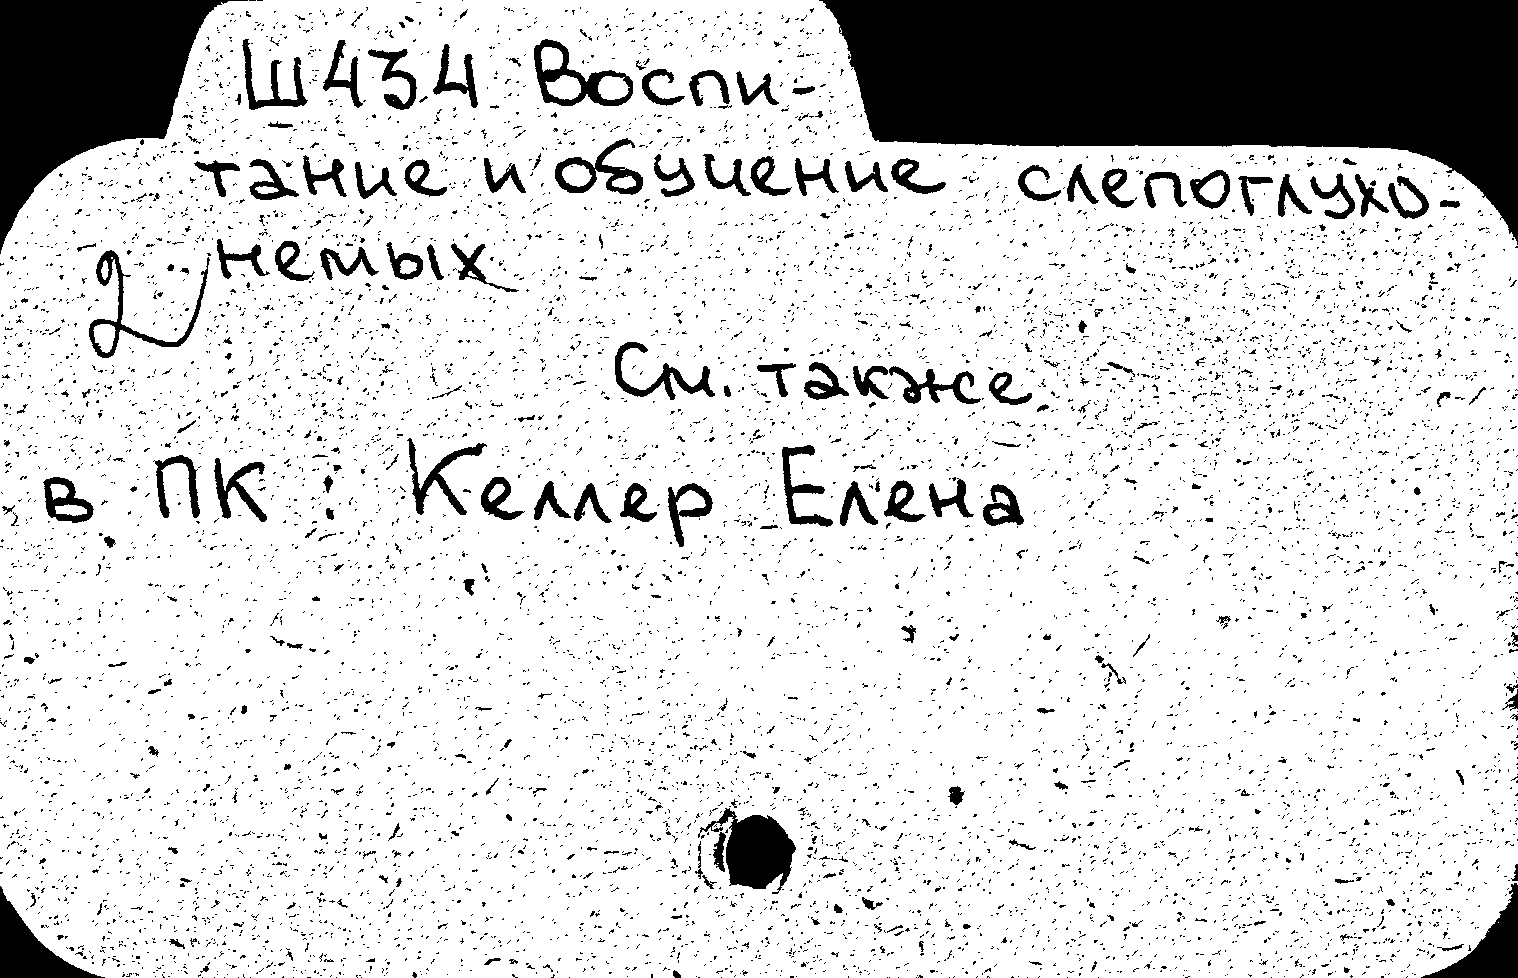 Ш434 Воспи-
тание и обучение слепоглухо-
немых
2
См. также
в ПК: Келлер Елена